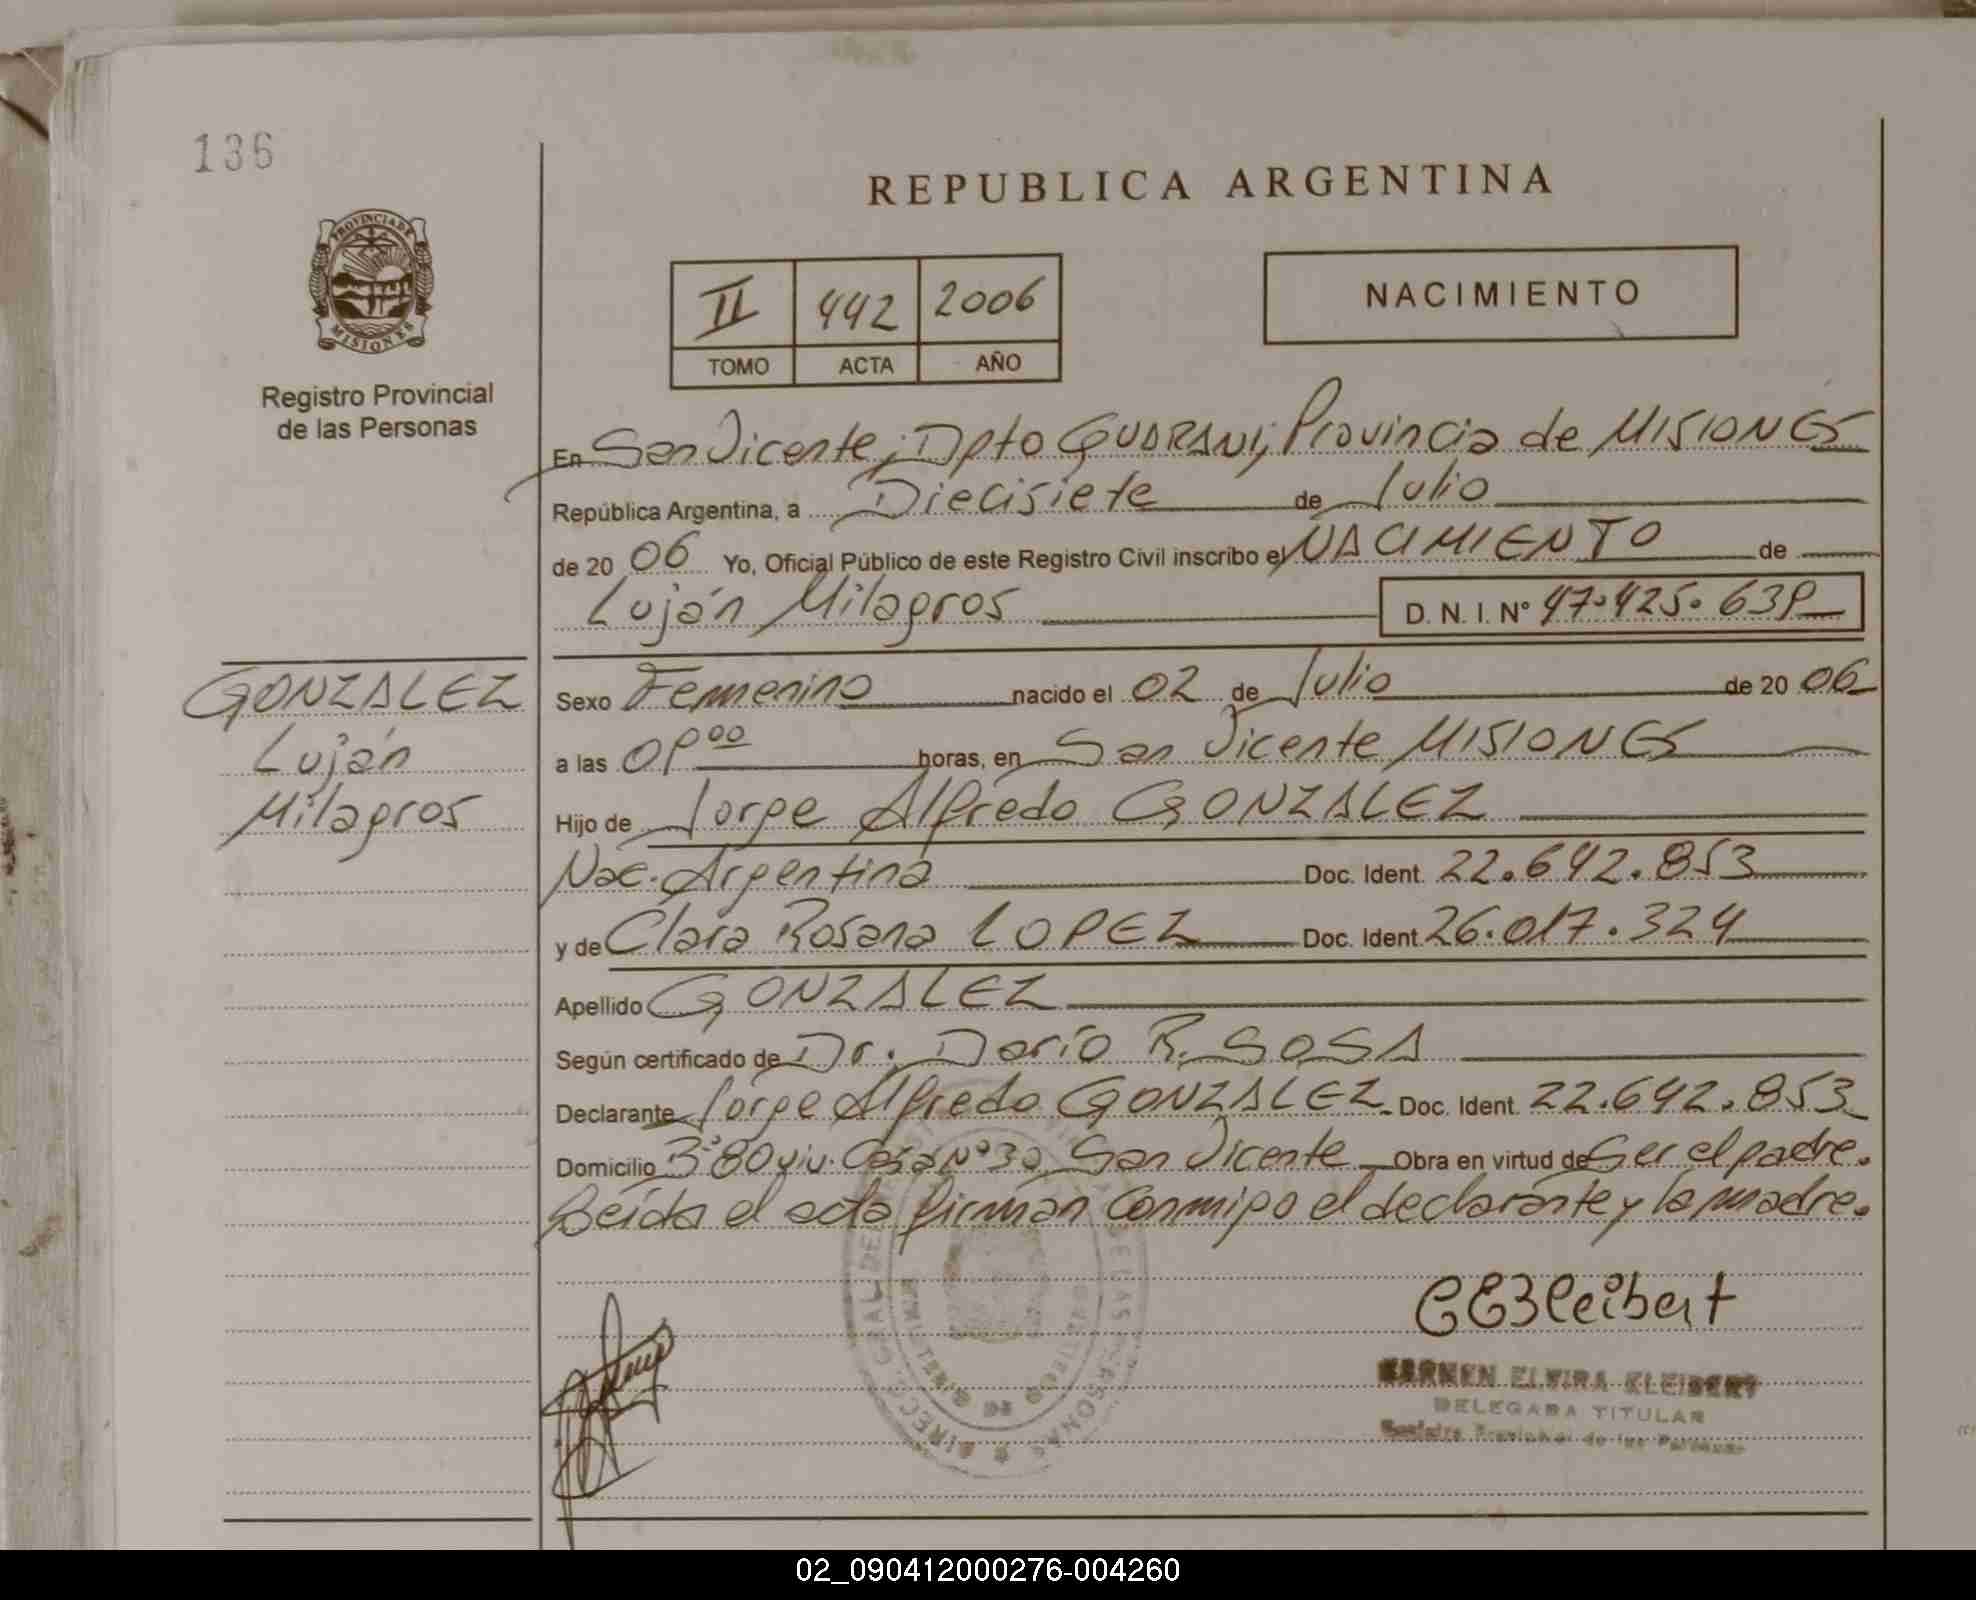 136
REPUBLICA ARGENTINA
PROVINCIA DE
MISIONES
Registro Provincial
de las Personas
II 442 2006
TOMO ACTA AÑO
NACIMIENTO
En San Vicente, Dpto GUARANI, Provincia de MISIONES
República Argentina, a Diecisiete de Julio
de 2006 Yo, Oficial Público de este Registro Civil inscribo el NACIMIENTO de
Luján Milagros D. N. I. Nº 47.425.639
GONZALEZ
Luján
Milagros
Sexo Femenino nacido el 02 de Julio de 2006
a las 09⁰⁰ horas, en San Vicente MISIONES
Hijo de Jorge Alfredo GONZALEZ
Nac. Argentina Doc. Ident. 22.642.853
y de Clara Rosana LOPEZ Doc. Ident 26.017.324
Apellido GONZALEZ
Según certificado de Dr. Darío R. SOSA
Declarante Jorge Alfredo GONZALEZ Doc. Ident. 22.642.853
Domicilio Bº 80 viv. Casa Nº 30 San Vicente Obra en virtud de Ser el padre.
Leída el acta firman conmigo el declarante y la madre.
CEKleibert
KARMEN ELVIRA KLEIBERT
DELEGADA TITULAR
Registro Provincial de las Personas
02_090412000276-004260